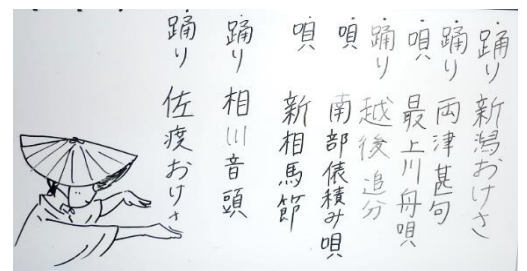 踊り 新潟おけさ
踊り 両津甚句
唄 最上川舟唄
踊り 越後追分
唄 南部俵積み唄
唄 新相馬節
踊り 相川音頭
踊り 佐渡おけさ